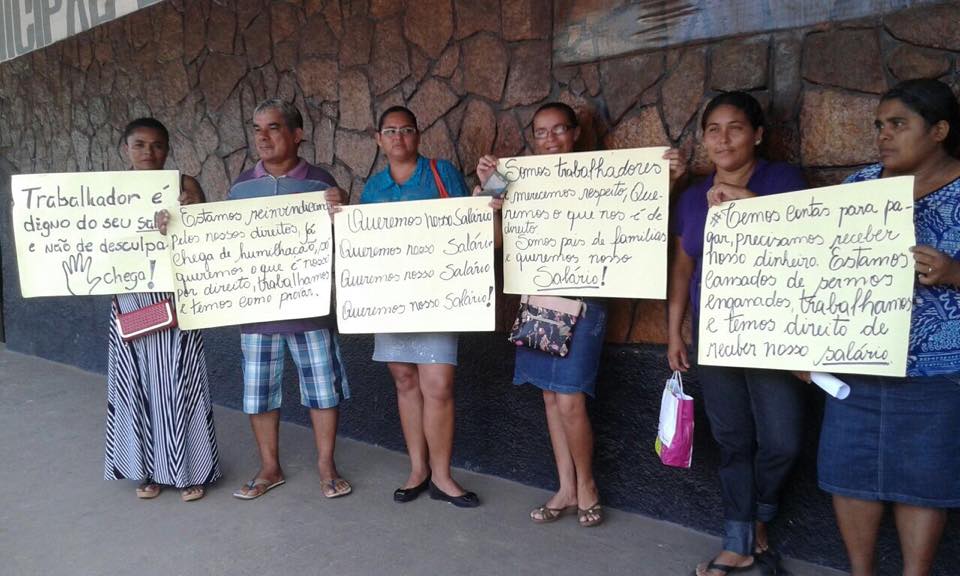 TRABALHADOR É
DIGNO DO SEU
E NÃO DE DESCULPA
CHEGO!
Estamos
pelos nossos direitos, já
chega de humilhação, só
queremos o que é nosso
por direito, trabalhamos
e temos como provar.
Queremos nosso Salário
Queremos nosso Salário
Queremos nosso Salário
Queremos nosso Salário!
Somos trabalhadores
merecemos respeito, Que-
remos o que nos é de
direito
Somos pais de famílias
e queremos nosso
Salário!
#Temos contas para pa-
gar, precisamos receber
nosso dinheiro. Estamos
cansados de sermos
enganados, trabalhamos
e temos direito de
receber nosso salário